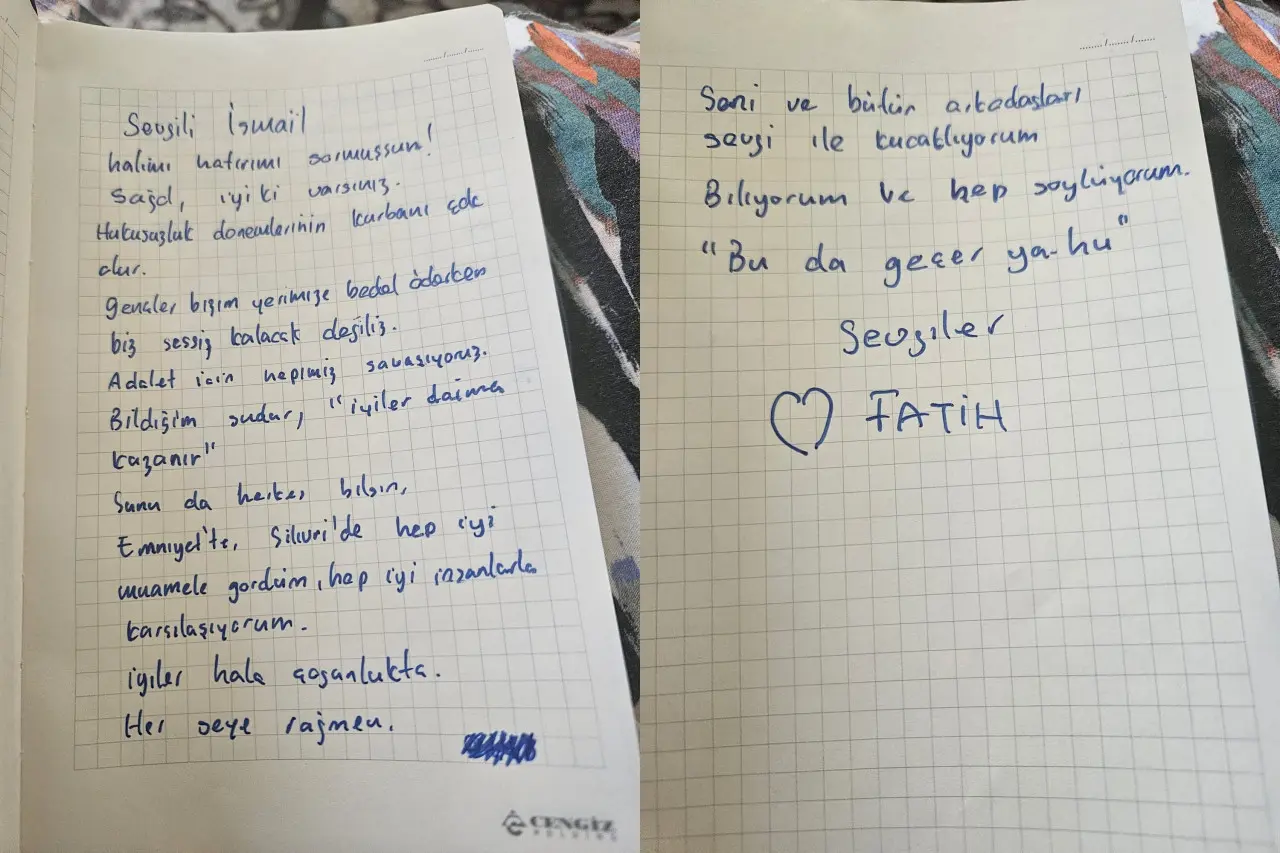 ....../....../......
Sevgili İsmail
halimi hatırımı sormuşsun!
Sağol, iyi ki varsınız.
Hukusuzluk donemlerinin kurbanı çok
olur.
Gençler bizim yerimize bedel öderken
biz sessiz kalacak değiliz.
Adalet için hepimiz savaşıyoruz.
Bildiğim şudur, "iyiler daima
kazanır"
Şunu da herkes bilsin,
Emniyet'te, Silivri'de hep iyi
muamele gördüm, hep iyi insanlarla
karşılaşıyorum.
iyiler hala çoğunlukta.
Her şeye rağmen.
CENGİZ
HOLDING
....../....../......
Seni ve bütün arkadaşları
sevgi ile kucaklıyorum
Biliyorum ve hep söylüyorum.
"Bu da geçer ya-hu"
Sevgiler
FATİH